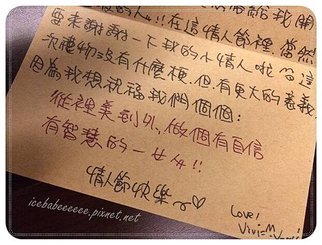 給我開
的人!!在這情人節裡,當然
要來謝謝一下我的小情人啦
次禮物沒有什麼梗,但有更大的意義,
因為我想祝福我們個個:
從裡美到外,做個有自信
有智慧的一女人!!
情人節快樂~♡
Love!
icebabeeeeee.pixnet.net